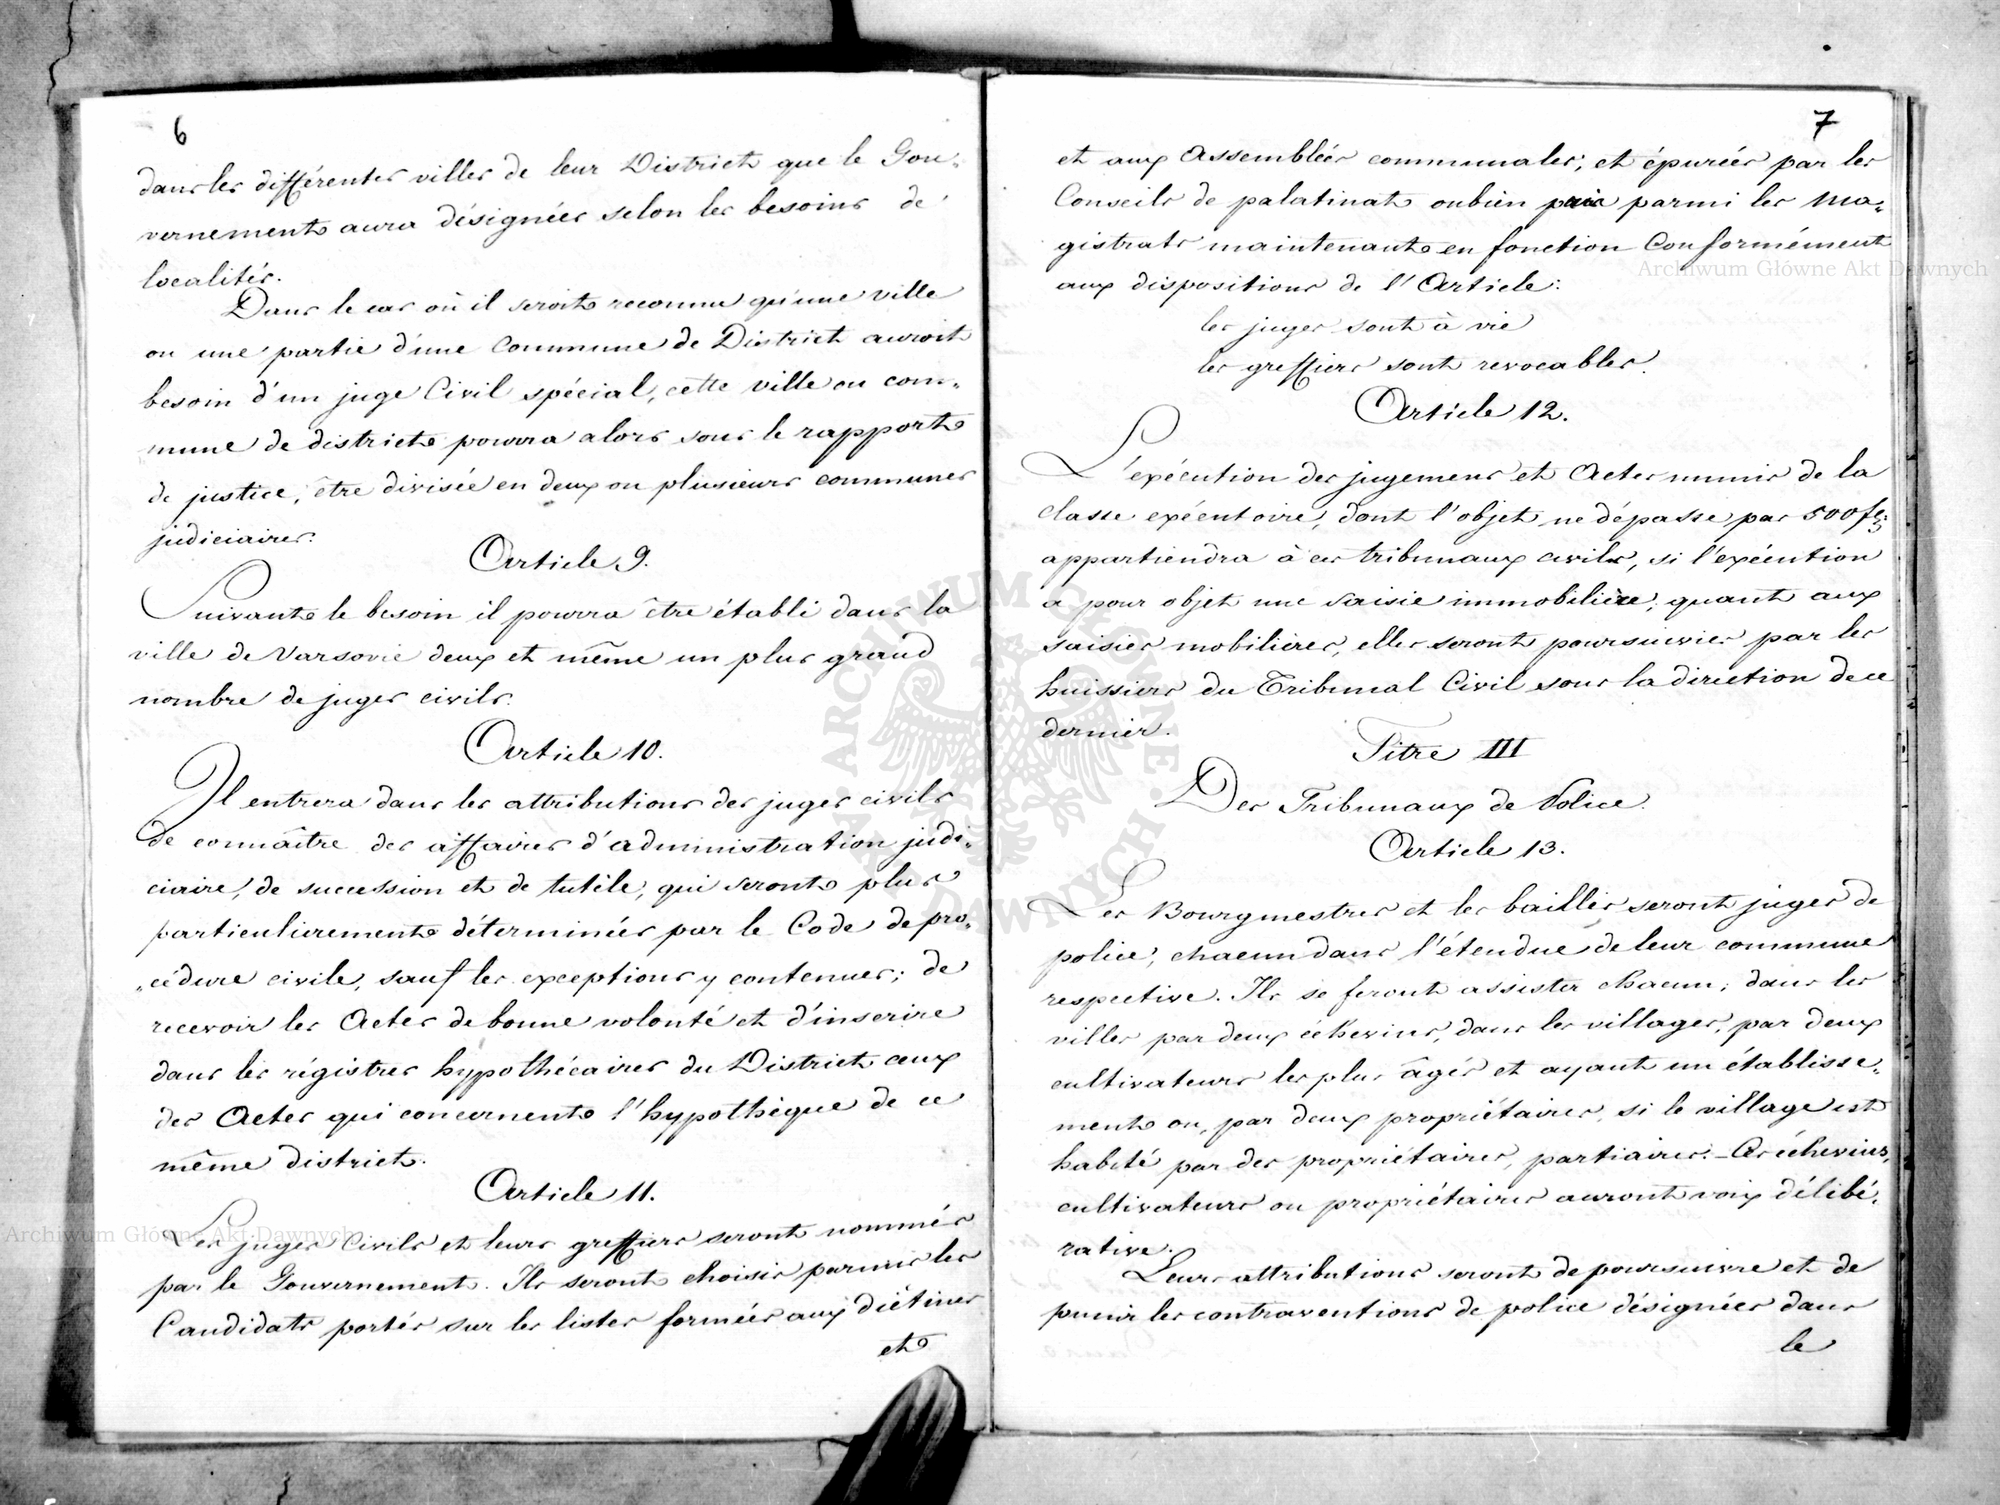 6
dans les différentes villes de leur District que le Gou-
vernement aura désignées selon les besoins de
localités.
Dans le cas où il seroit reconnu qu'une ville
ou une partie d'une Commune de District auroit
besoin d'un juge Civil spécial, cette ville ou com-
mune de district pourra alors sous le rapport
de justice, être divisée en deux ou plusieurs communes
judiciaires.
Article 9.
Suivant le besoin il pourra être établi dans la
ville de Varsovie deux et même un plus grand
nombre de juges civils.
Article 10.
Il entrera dans les attributions des juges civils
de connaître des affaires d'administration judi-
ciaire, de succession et de tutèle, qui seront plus
particulierement déterminées par le Code de pro-
cédure civile, sauf les exceptions y contenues; de
recevoir les Actes de bonne volonté et d'inscrire
dans les régistres hypothécaires du District ceux
des Actes qui concernent l'hypothèque de ce
même district.
Article 11.
Les juges Civils et leurs greffiers seront nommés
par le Gouvernement. Ils seront choisis parmis les
Candidats portés sur les listes formées aux diétines
et
7
et aux Assemblées communales; et épurées par les
Conseils de palatinat oubien pris parmi les Ma-
gistrats maintenant en fonction Conformément
aux dispositions de l'Article:
les juges sont à vie
les greffiers sont revocables.
Article 12.
L'exécution des jugemens et Actes munis de la
classe exécutoire, dont l'objet ne dépasse pas 500 fl:
appartiendra à ces tribunaux civils, si l'exécution
a pour objet une saisie immobilière; quant aux
saisies mobilières, elles seront poursuivies par les
huissiers du Tribunal Civil sous la direction de ce
dernier.
Titre III
Des Tribunaux de Police.
Article 13.
Les Bourgmestres et les baillis seront juges de
police, chacun dans l'étendue de leur commune
respective. Ils se feront assister chacun, dans les
villes par deux échevins, dans les villages, par deux
cultivateurs les plus âgés et ayant un établisse-
ment ou, par deux propriétaires, si le village est
habité par des propriétaires, partiaires. - Ces échevins,
cultivateurs ou propriétaires auront voix délibé-
rative.
Leurs attributions seront de poursuivre et de
punir les contraventions de police désignées dans
le
Archiwum Główne Akt Dawnych
Archiwum Główne Akt Dawnych
ARCHIWUM GŁÓWNE AKT DAWNYCH